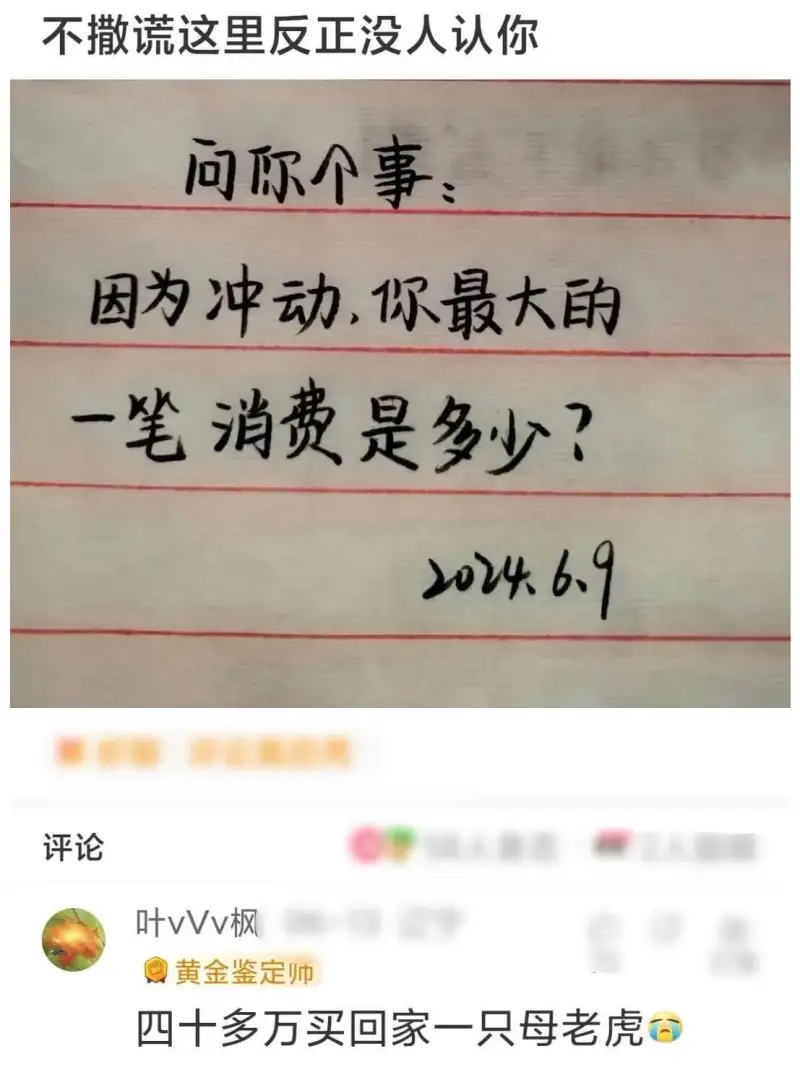 不撒谎这里反正没人认你
问你个事：
因为冲动，你最大的
一笔消费是多少？
2024.6.9
评论
叶vVv枫
黄金鉴定帅
四十多万买回家一只母老虎😭